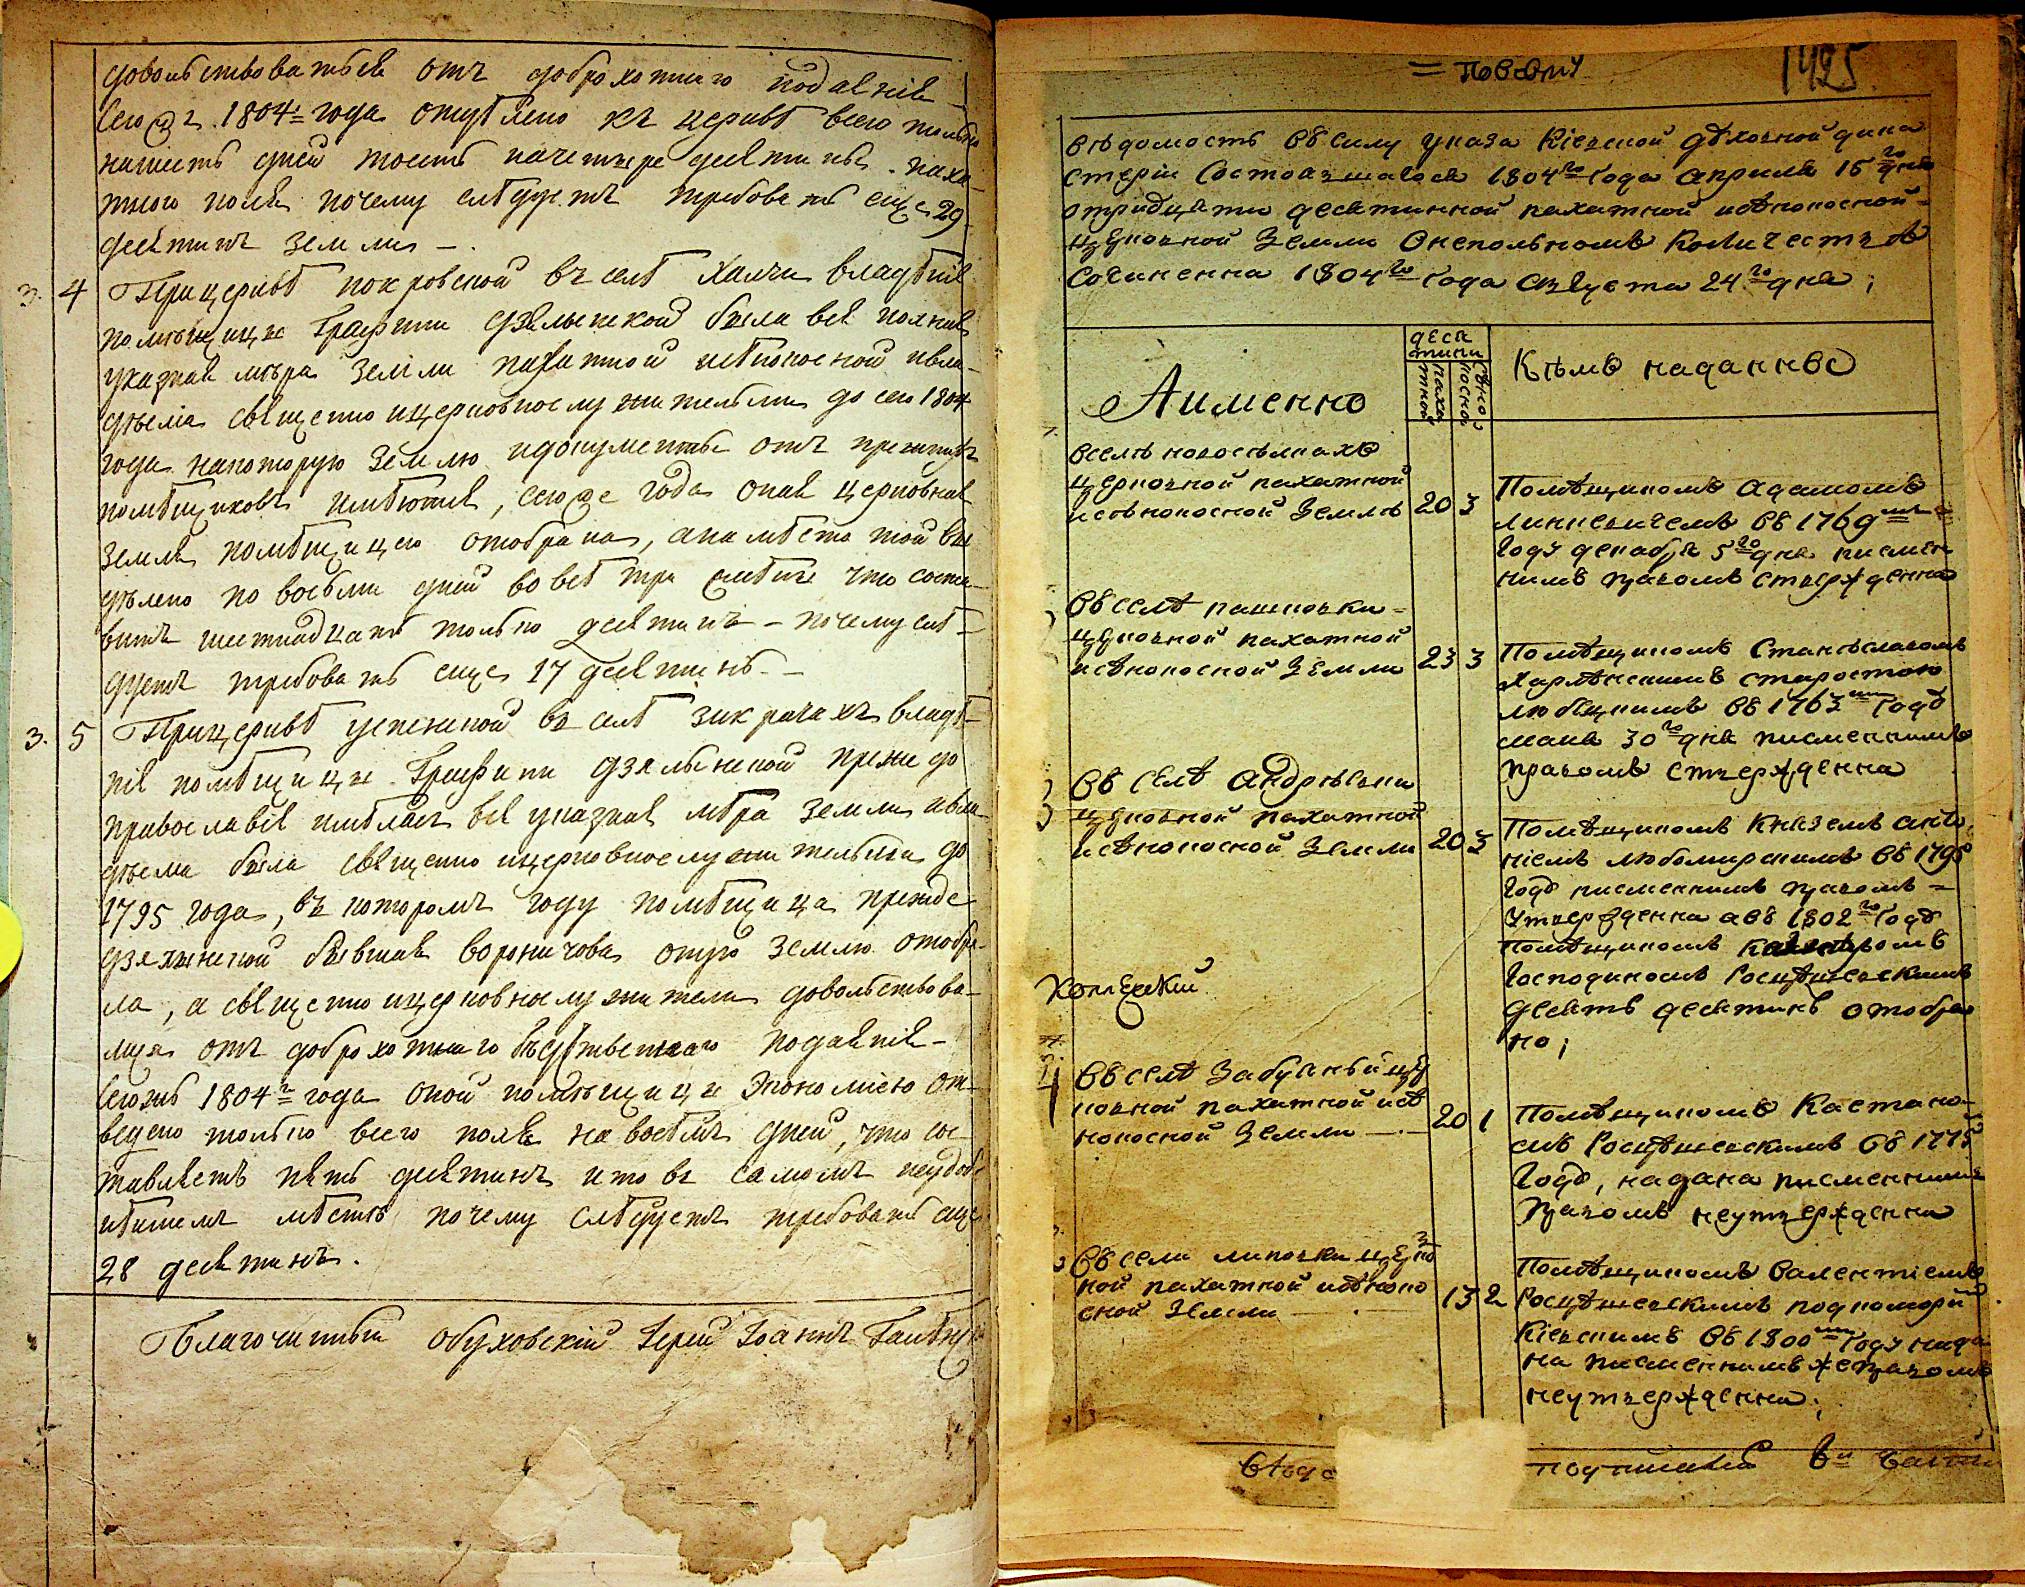 довольствоватьсѧ отъ доброхотнаго подаѧнія
сего 1804= года отдѣлено къ церквѣ всего только
нашесть дней тоесть начетыре десѧтины паха-
тного полѧ почему слѣдуетъ требовать еще 29
десѧтинъ земли –.
3. 4 Прицерквѣ покровской въ селѣ Халчи владѣнія
помѣщицы Графини Дзялынской была всѧ полнаѧ
указнаѧ мѣра земли пахатной исѣнокосной ивла-
дѣема свѧщенно ицерковнослужительми до сего 1804
года накоторую землю идокументы отъ прежнихъ
помѣщиковъ имѣютсѧ, сегоже года онаѧ церковнаѧ
землѧ помѣщицею отобрана, анамѣсто той вы
дѣлено по восьми дней вовсѣ три смѣны что соста-
витъ шестнадцать только десѧтинъ – почему слѣ-
дуетъ требовать еще 17 десѧтинъ –
3. 5 Прицерквѣ успенской въ селѣ зикрачахъ владѣ-
нія помѣщицы Графини Дзялынской прежде до
православія имѣлась всѧ указнаѧ мѣра земли ивла
дѣема была свѧщенно ицерковнослужительми до
1795 года, въ которомъ году помѣщица прежде
дзялынской бывшаѧ вороничова оную землю отобра-
ла, а свѧщенно ицерковнослужители довольствова-
лися отъ доброхотнаго подаѧнія –
сегожъ 1804= года оной помѣщицы Экономіею от-
ведено только всего полѧ на восѣмъ дней, что сос
тавлѧетъ пѧть десѧтинъ ито въ самомъ неудоб
нѣишемъ мѣстѣ почему слѣдуетъ требовать еще
28 десѧтинъ.
Благочинный Обуховскій Іерей Іоаннъ
= повѣту 1425
Вѣдомость въ силу указа Кіевской духовной дика
стеріи Состоявшагося 1804го Года Априля 15го дня
отридцяти десятинной пахатной исѣнокосной =
церковной Земли Онепольномъ Количествѣ
Сочиненна 1804го Года Августа 24го дня;
Аименно
десѧ
тини
пахат
тной
сѣно
косно
Кѣмъ наданнѡ
Вселѣ новосѣлкахъ
церковной пахатной
исѣнокосной Землѣ 20 3
Помѣщикомъ Адамомъ
линкевичемъ въ 1769мъ
Году декабря 5го дня писмен
нимъ правомъ ствержденна
Въ селѣ пашковки =
церковной пахатной
исѣнокосной Земли 23 3
Помѣщикомъ Станѣславомъ
Харлѣнскимъ старостою
любѣцкимъ въ 1763мъ Годѣ
маия 30го дня писменнимъ
правомъ ствержденна
3 Въ Селѣ андрѣевки
церковной пахатной
исѣнокосной Земли 20 3
Помѣщикомъ Княземъ анто
ніемъ любомирскимъ въ 1795
Годѣ писменнимъ правомъ =
утвержденна авъ 1802го Годѣ
Помѣщикомъ
Господиномъ Росцѣшевскимъ
десять десятинъ отобран
но;
Въ селѣ Забуянѣй цер
ковной пахатной исѣ
нокосной Земли —.– 20 1
Помѣщикомъ Каетано-
мъ Росцѣшевскимъ въ 1775
Годѣ, надана писменнимъ
правомъ неутвержденна
Въ селѣ липовки церко
ной пахатной исѣноко
сной Земли — . 13 2
Помѣщикомъ Валентіемъ
Росцѣшевскимъ подкоморій
Кіевскимъ въ 1800мъ Году нада
на писменнимъ же правомъ
неутвержденна;